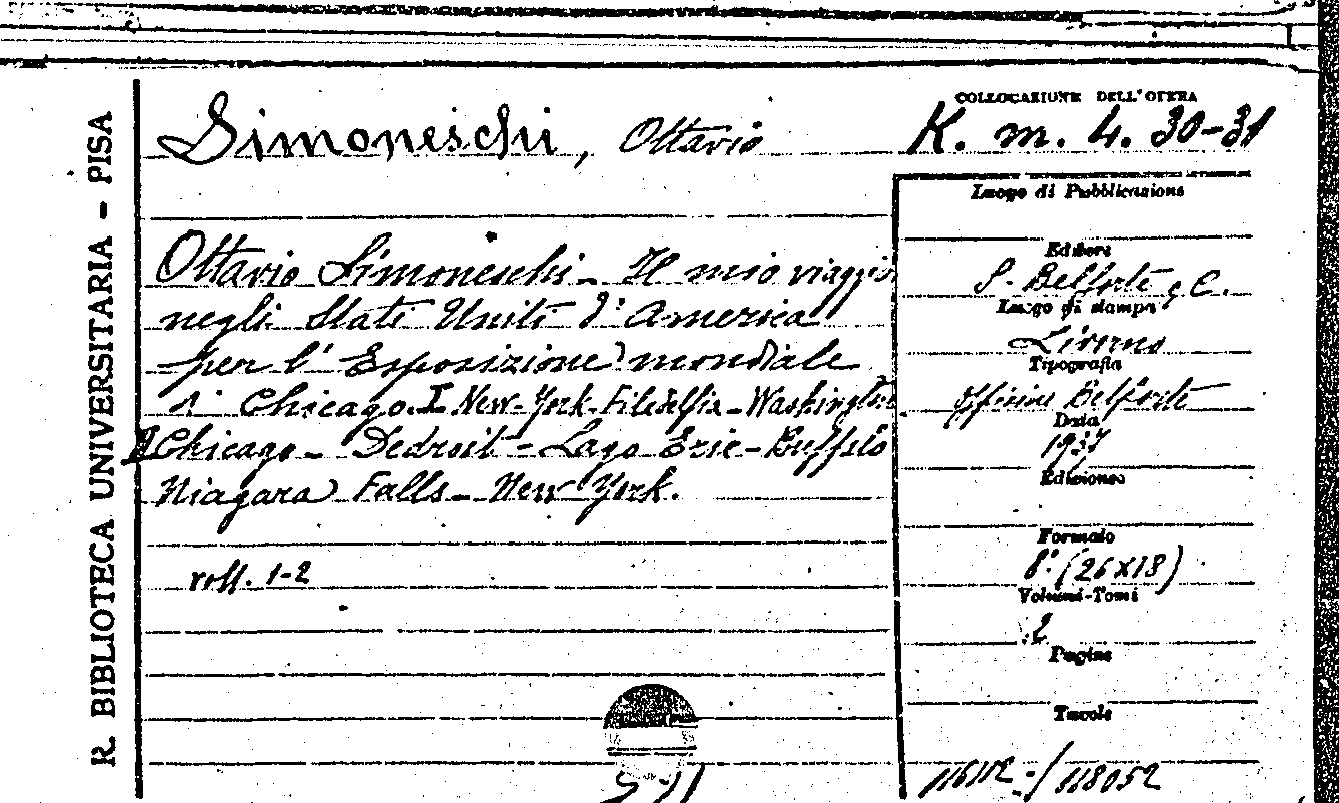 R. BIBLIOTECA UNIVERSITARIA - PISA
Simoneschi, Ottavio
COLLOCAZIONE DELL'OPERA
K. m. 4. 30-31
Ottavio Simoneschi - Il mio viaggio
negli Stati Uniti d'America
per l'Esposizione mondiale
di Chicago. I New-York-Filadelfia-Washington
II Chicago - Dedroit - Lago Erie - Buffalo
Niagara Falls - New York.
voll. 1-2
Luogo di Pubblicazione
Editore
S. Belforte e C.
Luogo di stampa
Livorno
Tipografia
Officine Belforte
Data
1937
Edizione
Formato
8° (26x18)
Volumi-Tomi
2
Pagine
Tavole
116112-/118052